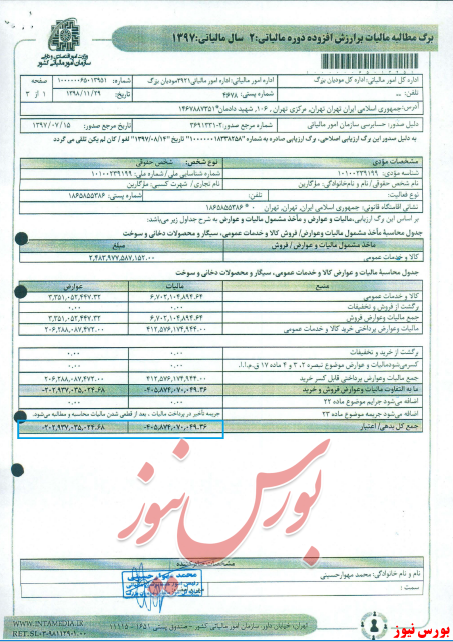 برگ مطالبه مالیات بر ارزش افزوده دوره مالیاتی: ۲ سال مالیاتی: ۱۳۹۷
سازمان امور مالیاتی کشور
اداره کل امور مالیاتی: اداره کل مودیان بزرگ
اداره امور مالیاتی: اداره امور مالیاتی ۳۹۲۱ مودیان بزرگ
شماره: ۱۰۰۰۰۰۰۶۵۰۱۳۹۵۱
صفحه
تلفن: --
شماره پستی: ۴۶۷۸
تاریخ: ۱۳۹۸/۱۱/۲۹
۱ از ۳
آدرس: جمهوری اسلامی ایران تهران تهران، مرکزی تهران، ۱۰۶، شهید دادمان
دلیل صدور: حسابرسی سازمان امور مالیاتی
شماره مرجع صدور: ۳۶۹۱۳۳۱۰۲
تاریخ مرجع صدور: ۱۳۹۷/۰۷/۱۵
به دلیل صدور این برگ ارزیابی اصلاحی، برگ ارزیابی صادره به شماره "۱۰۰۰۰۰۰۱۸۳۳۸۲۵۸" "۱۳۹۷/۰۸/۱۴" لغو / کان لم یکن تلقی می گردد
مشخصات مؤدی
شناسه مؤدی: ۱۰۱۰۰۲۳۹۱۹۹
نوع شخص: شخص حقوقی
شماره شناسایی ملی/ شماره ملی: ۱۰۱۰۰۲۳۹۱۹۹
نام شخص حقوقی/ نام و نام‌خانوادگی: مژگارین
نام تجاری/ شهرت کسبی: مژگارین
نوع فعالیت:
تلفن:
شماره پستی: ۱۸۶۵۸۵۵۳۸۶
نشانی اقامتگاه قانونی: جمهوری اسلامی ایران، تهران، تهران ۰ * ۱۸۶۵۸۵۵۳۸۶
بر اساس این برگ ارزیابی، مالیات و عوارض و مأخذ مشمول مالیات و عوارض به شرح جداول زیر می‌باشد:
جدول محاسبهٔ مأخذ مشمول مالیات وعوارض/ فروش کالا و خدمات عمومی، سیگار و محصولات دخانی و سوخت
مأخذ مشمول مالیات و عوارض / فروش
مبلغ
کالا و خدمات عمومی
۲,۴۸۳,۹۷۷,۵۸۷,۱۵۲.۰۰
جدول محاسبهٔ مالیات و عوارض کالا و خدمات عمومی، سیگار و محصولات دخانی و سوخت
منبع
مالیات
عوارض
کالا و خدمات عمومی
۶,۷۰۲,۱۰۴,۸۹۴.۶۴
۳,۳۵۱,۰۵۲,۴۴۷.۳۲
برگشت از فروش و تخفیفات
۰.۰۰
۰.۰۰
جمع مالیات وعوارض فروش
۶,۷۰۲,۱۰۴,۸۹۴.۶۴
۳,۳۵۱,۰۵۲,۴۴۷.۳۲
مالیات و عوارض پرداختی خرید کالا و خدمات عمومی
۴۱۲,۵۷۶,۱۷۴,۹۴۴.۰۰
۲۰۶,۲۸۸,۰۸۷,۴۷۲.۰۰
برگشت از خرید و تخفیفات
۰.۰۰
۰.۰۰
کسر می‌شود مالیات و عوارض موضوع تبصره ۲، ۳ و ۴ ماده ۱۷ ق.م.ا.ا.
۰.۰۰
۰.۰۰
جمع مالیات وعوارض پرداختی قابل کسر خرید
۴۱۲,۵۷۶,۱۷۴,۹۴۴.۰۰
۲۰۶,۲۸۸,۰۸۷,۴۷۲.۰۰
ما به التفاوت مالیات وعوارض فروش و خرید
-۴۰۵,۸۷۴,۰۷۰,۰۴۹.۳۶
-۲۰۲,۹۳۷,۰۳۵,۰۲۴.۶۸
اضافه می‌شود جرایم موضوع ماده ۲۲
۰.۰۰
۰.۰۰
اضافه می‌شود جریمه موضوع ماده ۲۳
جریمه تأخیر در پرداخت مالیات ، بعد از قطعی شدن مالیات محاسبه و مطالبه می‌شود.
جمع کل بدهی/ اعتبار
-۴۰۵,۸۷۴,۰۷۰,۰۴۹.۳۶
-۲۰۲,۹۳۷,۰۳۵,۰۲۴.۶۸
بورس نیوز
نام و نام خانوادگی: محمد مهوارحسینی
سمت:
محمد مهوار حسینی
تهران، خیابان داور، سازمان امور مالیاتی کشور - صندوق پستی ۱۶۵۱ - ۱۱۱۱۵
WWW.INTAMEDIA.IR
بورس نیوز